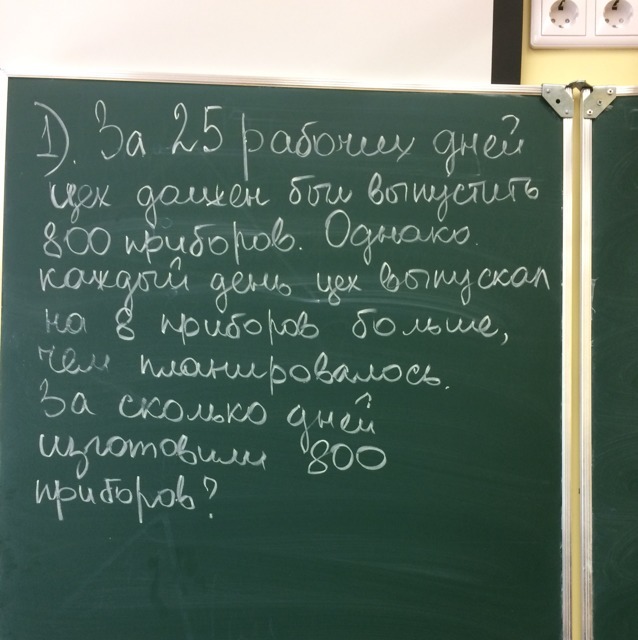 1). За 25 рабочих дней
цех должен был выпустить
800 приборов. Однако
каждый день цех выпускал
на 8 приборов больше,
чем планировалось.
За сколько дней
изготовили 800
приборов?